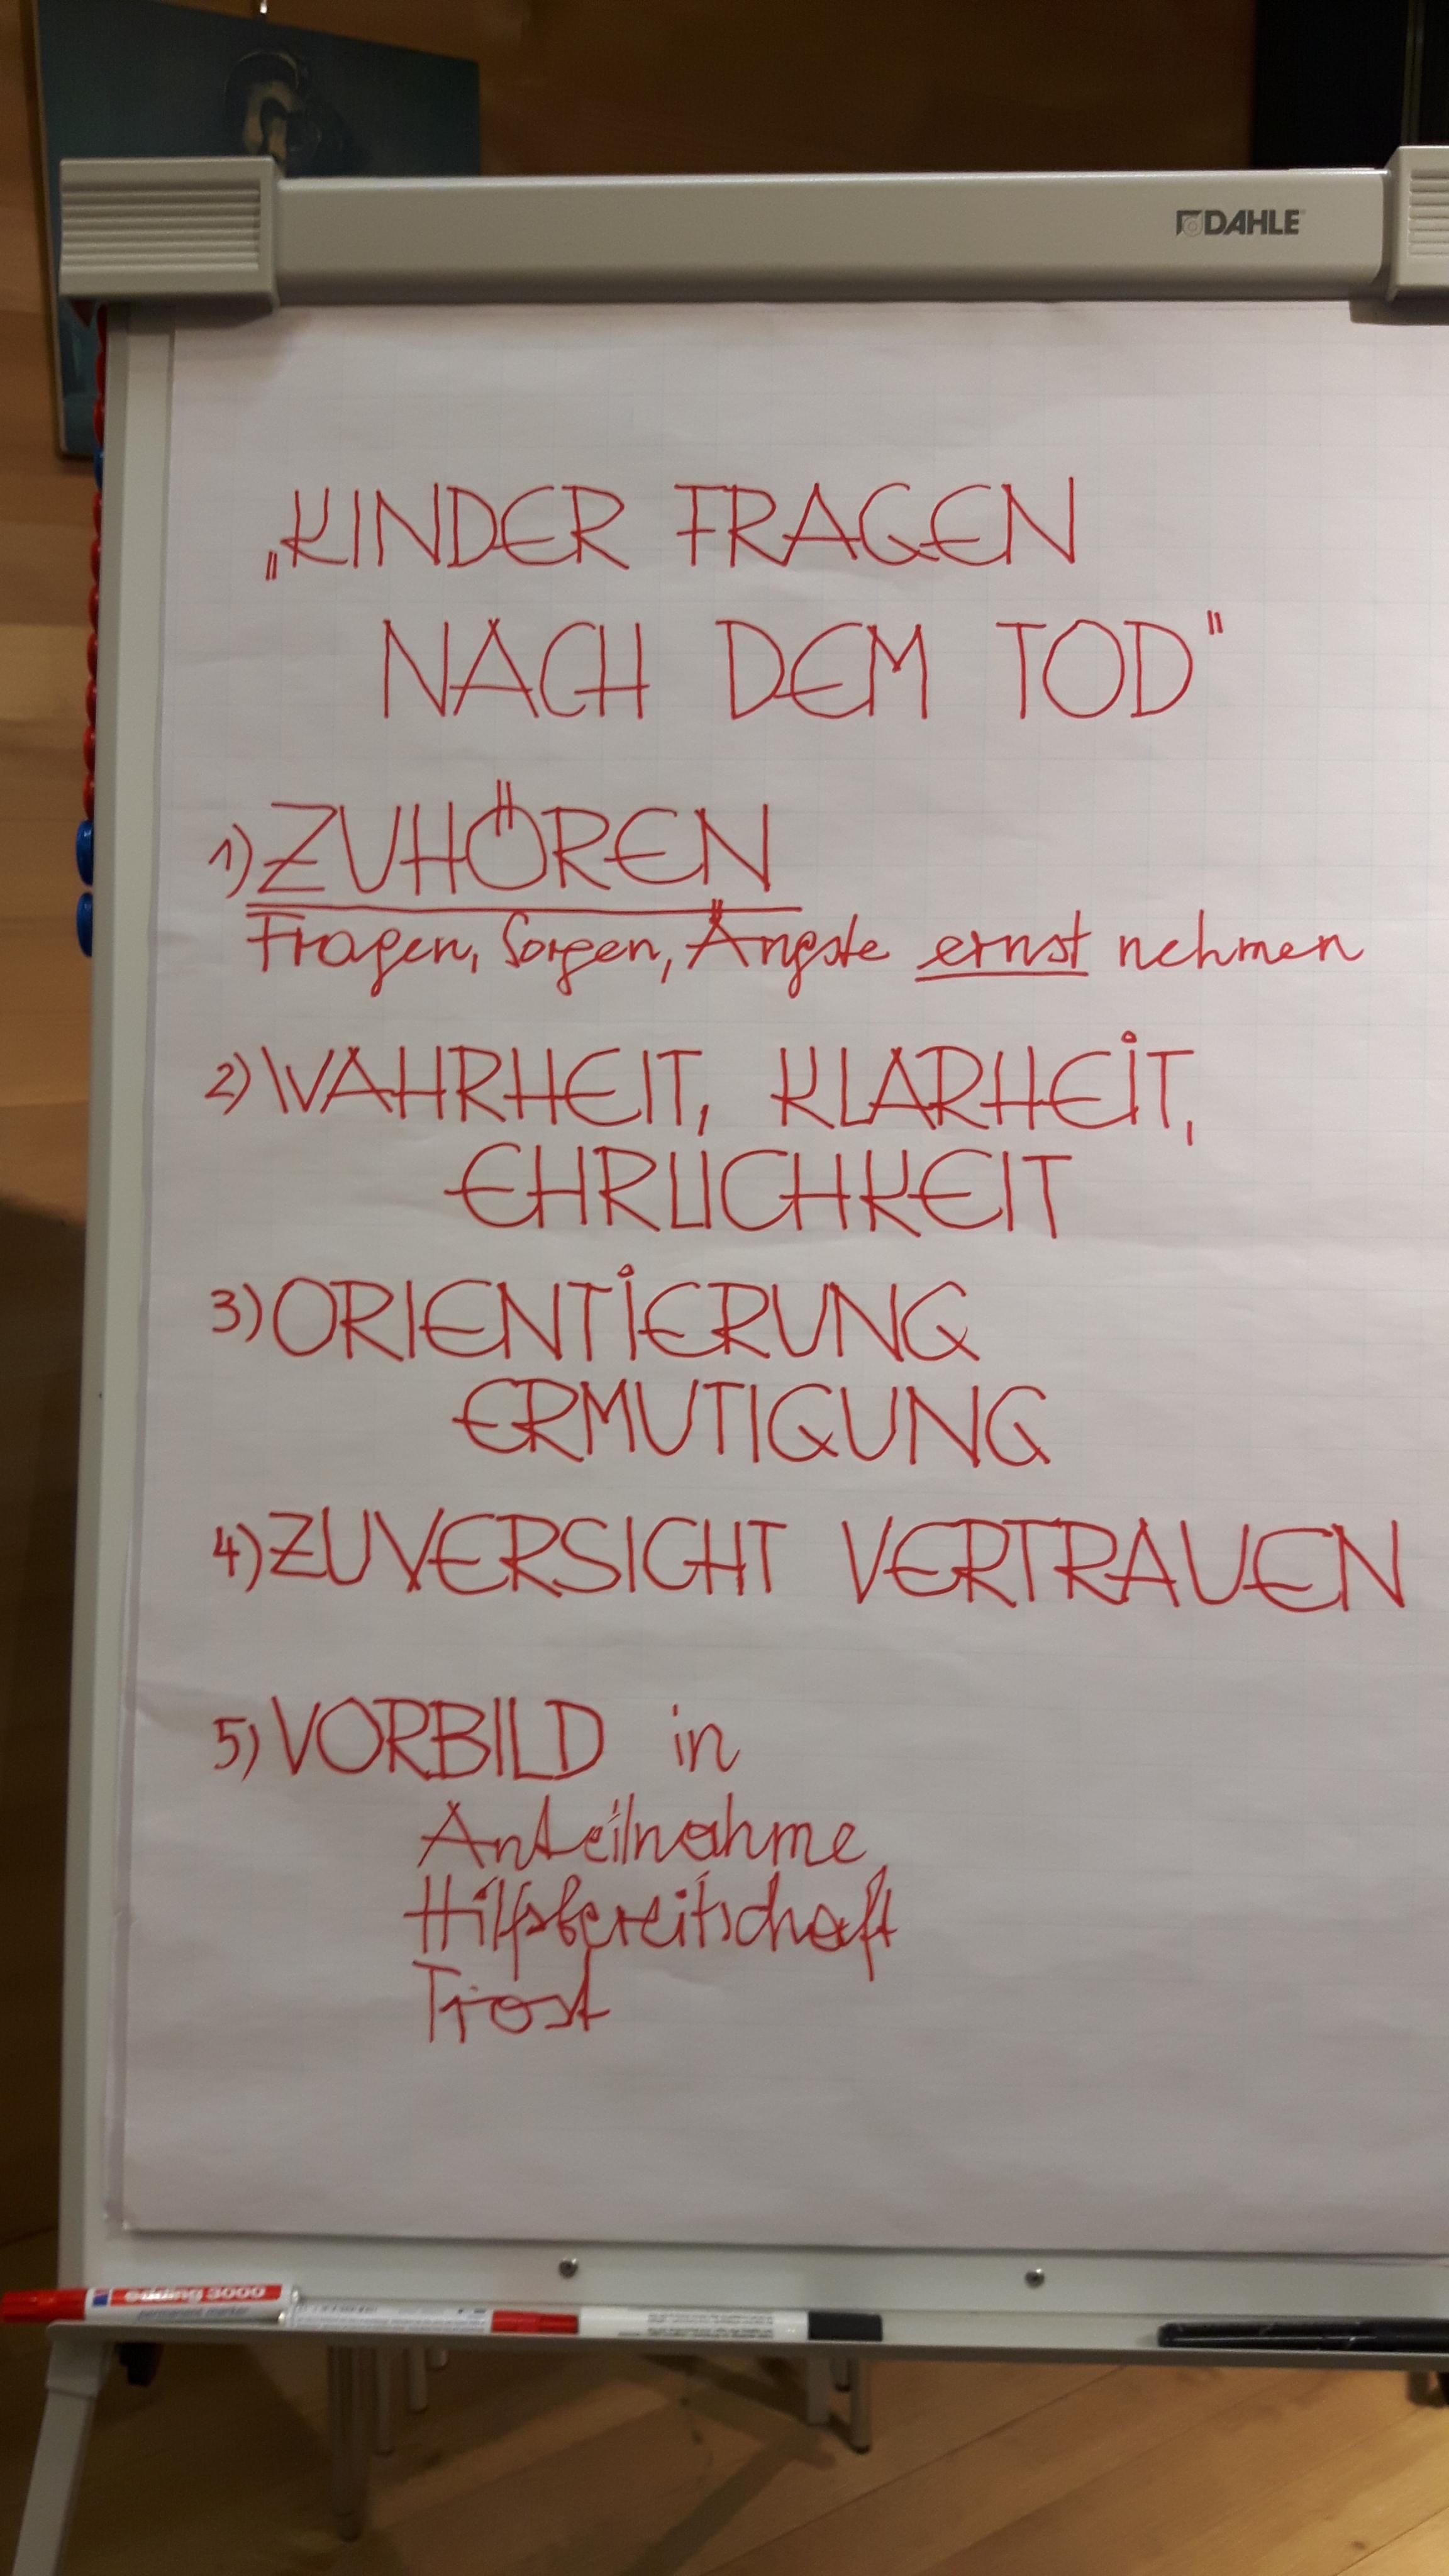 DAHLE
„KINDER FRAGEN
NACH DEM TOD"
1) ZUHÖREN
Fragen, Sorgen, Ängste ernst nehmen
2) WAHRHEIT, KLARHEIT,
EHRLICHKEIT
3) ORIENTIERUNG
ERMUTIGUNG
4) ZUVERSICHT VERTRAUEN
5) VORBILD in
Anteilnahme
Hilfsbereitschaft
Trost
edding 3000
permanent marker